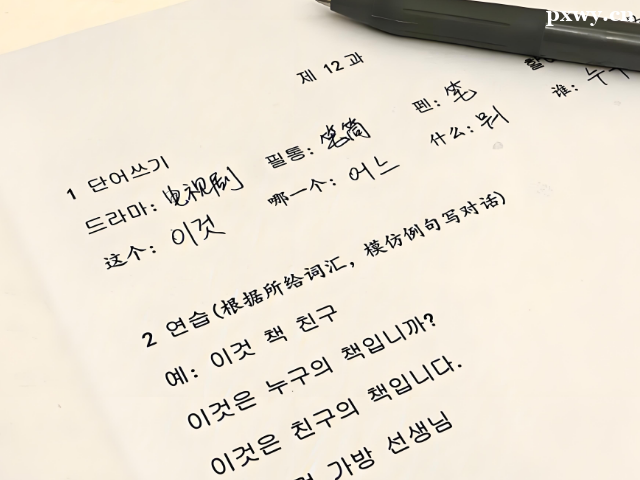 pxwy.cn
제 12 과
1 단어쓰기
드라마: 电视剧 필통: 笔筒 펜: 笔
这个: 이것 哪一个: 어느 什么: 뭐 谁: 누구
2 연습(根据所给词汇，模仿例句写对话)
예: 이것 책 친구
이것은 누구의 책입니까?
이것은 친구의 책입니다.
가방 선생님